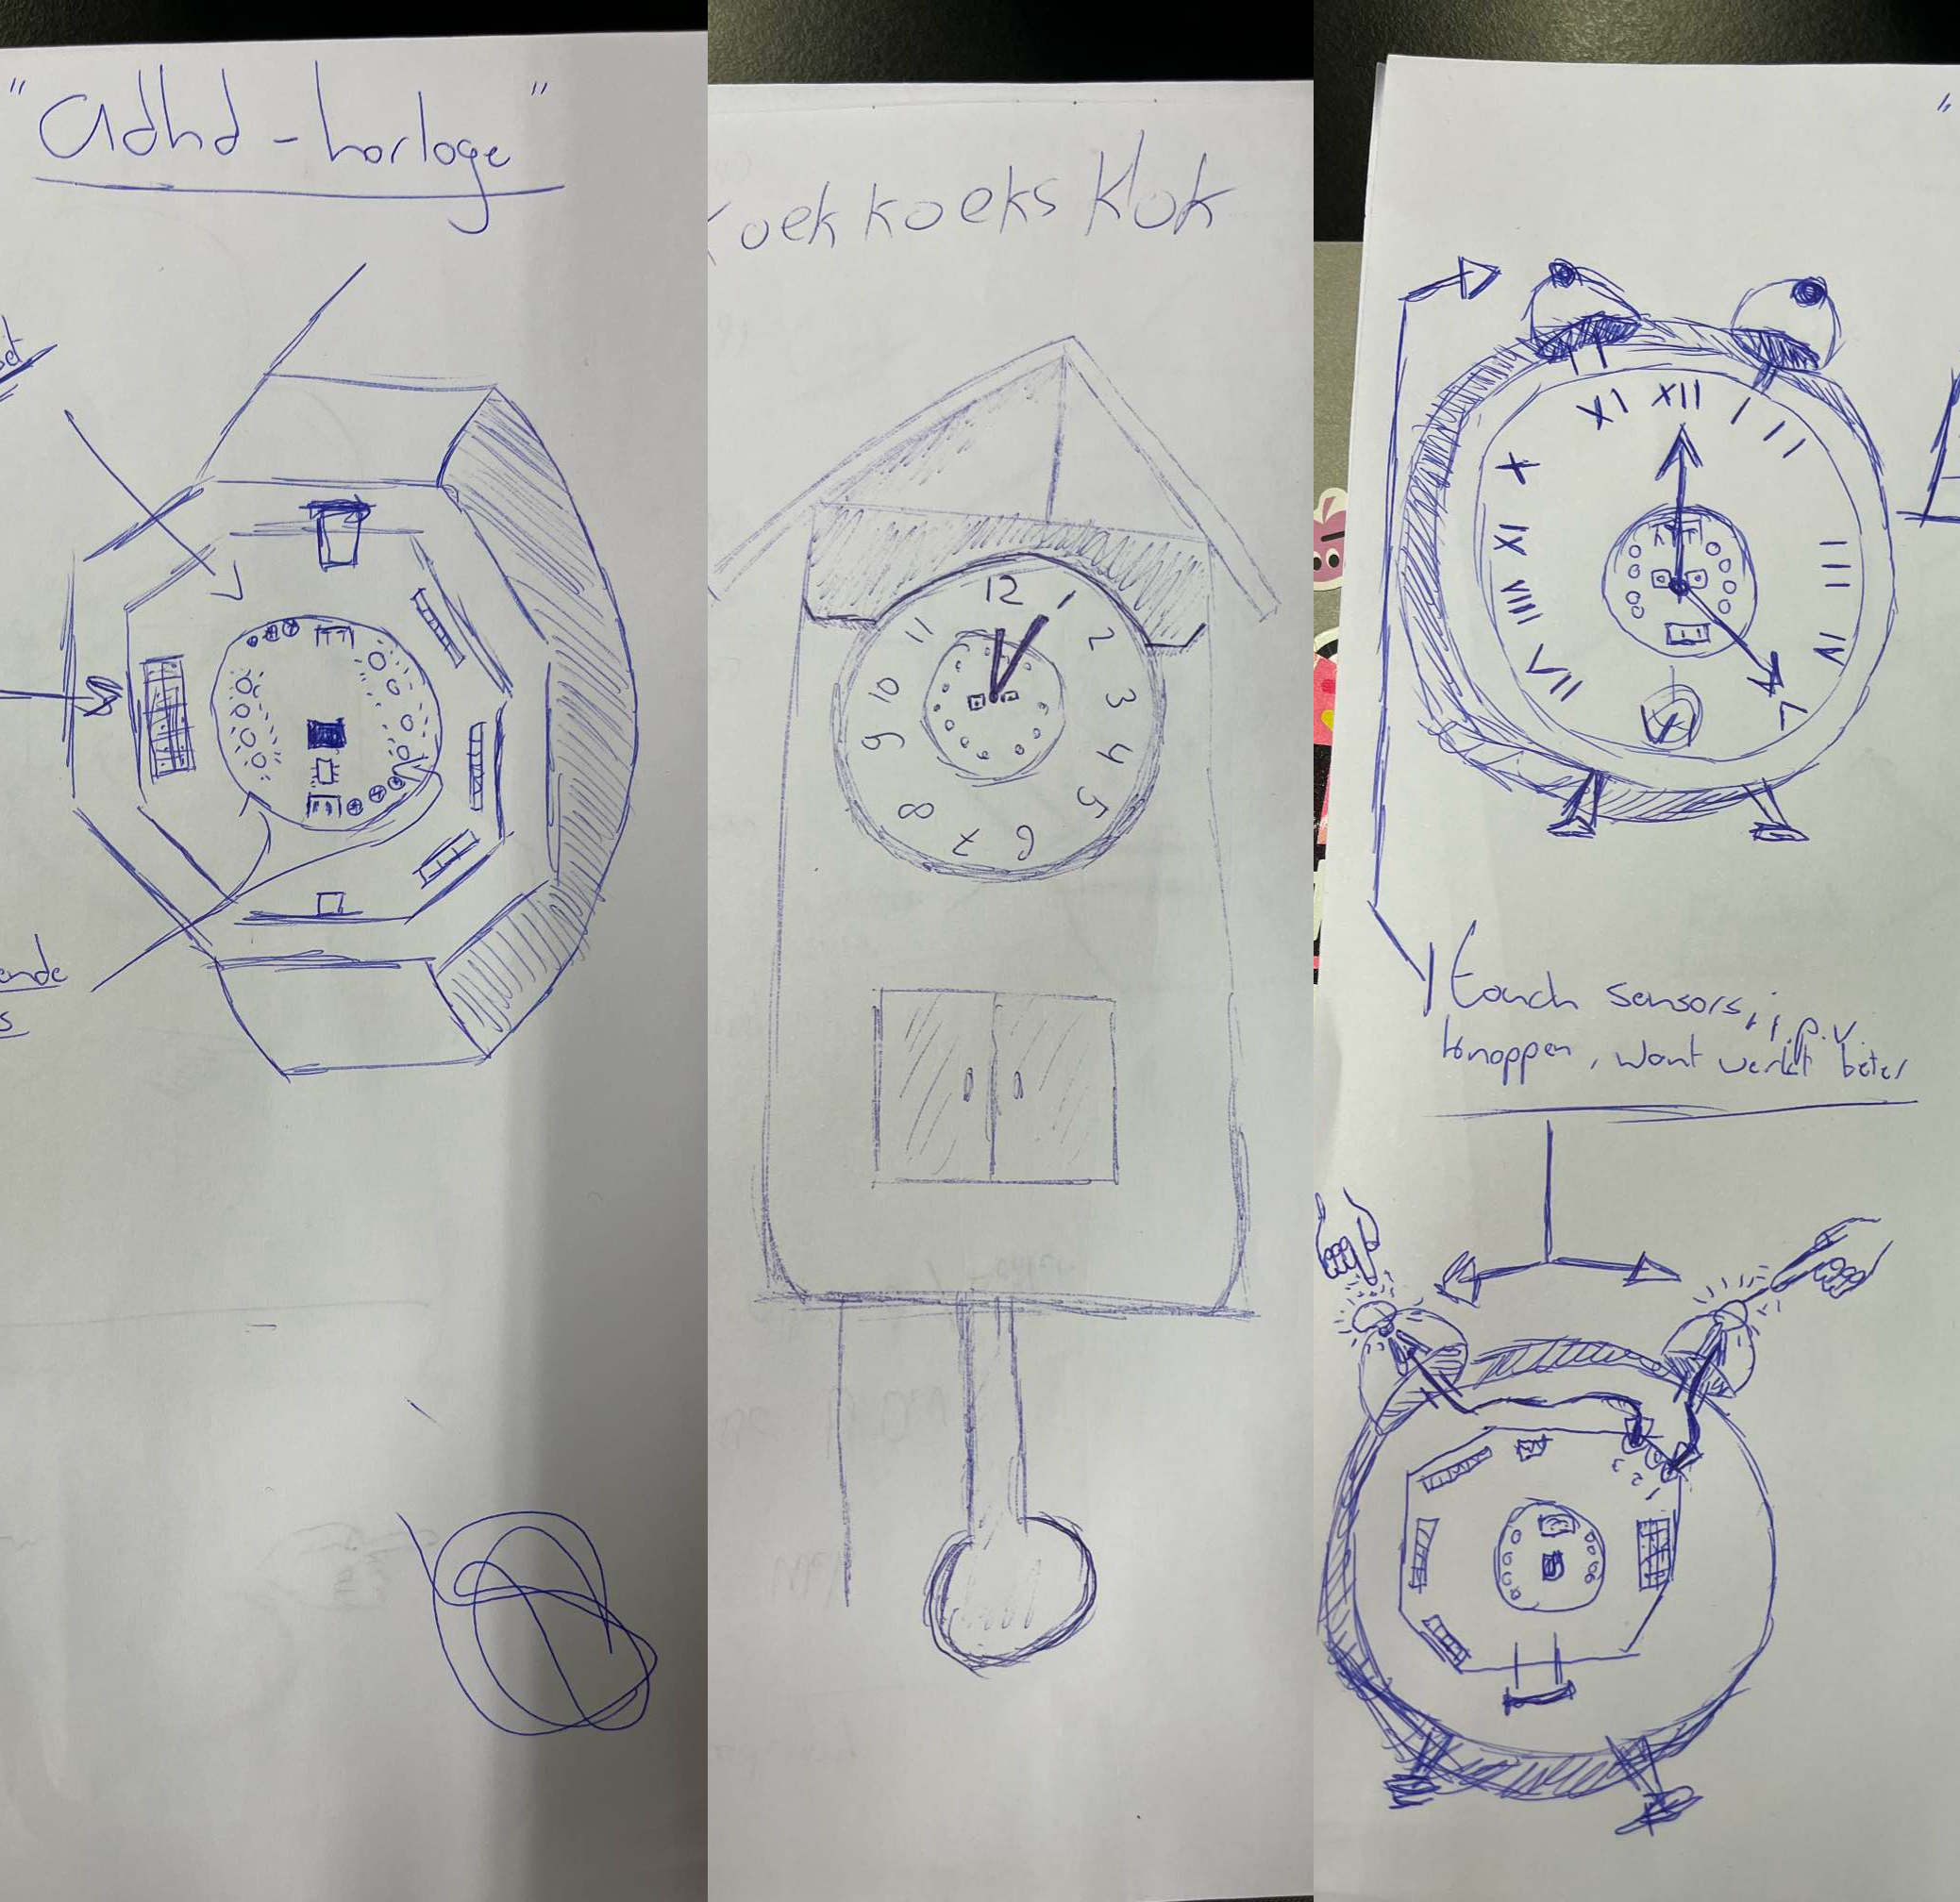 "Adhd-horloge"
ende
s
Koekkoeks Klok
12
1
2
3
4
5
6
7
8
9
10
11
XII
I
II
III
IV
V
VI
VII
VIII
IX
X
XI
touch sensors, i.p.v.
knoppen, want werkt beter